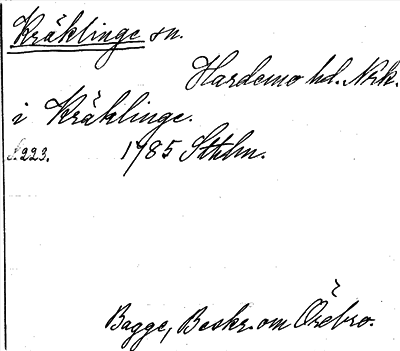 Kräklinge sn.
Hardemo hd. Nrk.
i Kräklinge.
s. 223. 1785 Sthlm.
Bagge, Beskr. om Örebro.